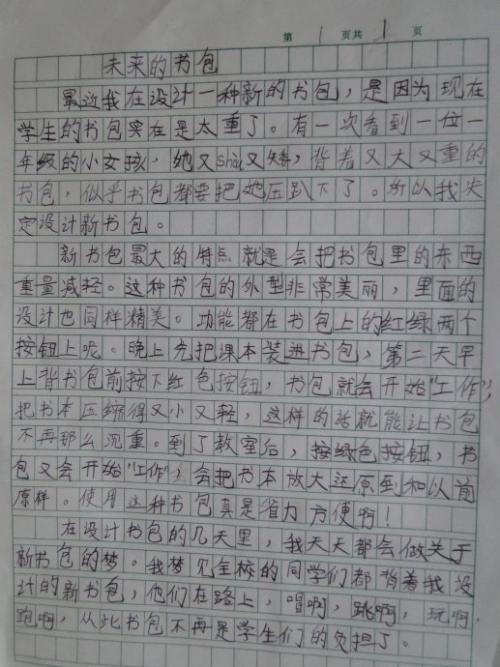 第 1 页共 1 页
未来的书包
最近我在设计一种新的书包，是因为现在
学生的书包实在是太重了。有一次看到一位一
年级的小女孩，她又shou又矮，背着又大又重的
书包，似乎书包都要把她压趴下了。所以我决
定设计新书包。
新书包最大的特点就是会把书包里的东西
重量减轻。这种书包的外型非常美丽，里面的
设计也同样精美。功能都在书包上的红绿两个
按钮上呢。晚上先把课本装进书包，第二天早
上背书包前按下红色按钮，书包就会开始"工作"，
把书本压缩得又小又轻，这样的话就能让书包
不再那么沉重。到了教室后，按绿色按钮，书
包又会开始"工作"，会把书本放大还原到和以前
原样。使用这种书包真是省力方便啊！
在设计书包的几天里，我天天都会做关于
新书包的梦。我梦见全校的同学们都背着我设
计的新书包，他们在路上，唱啊，跳啊，玩啊，
跑啊，从此书包不再是学生们的负担了。